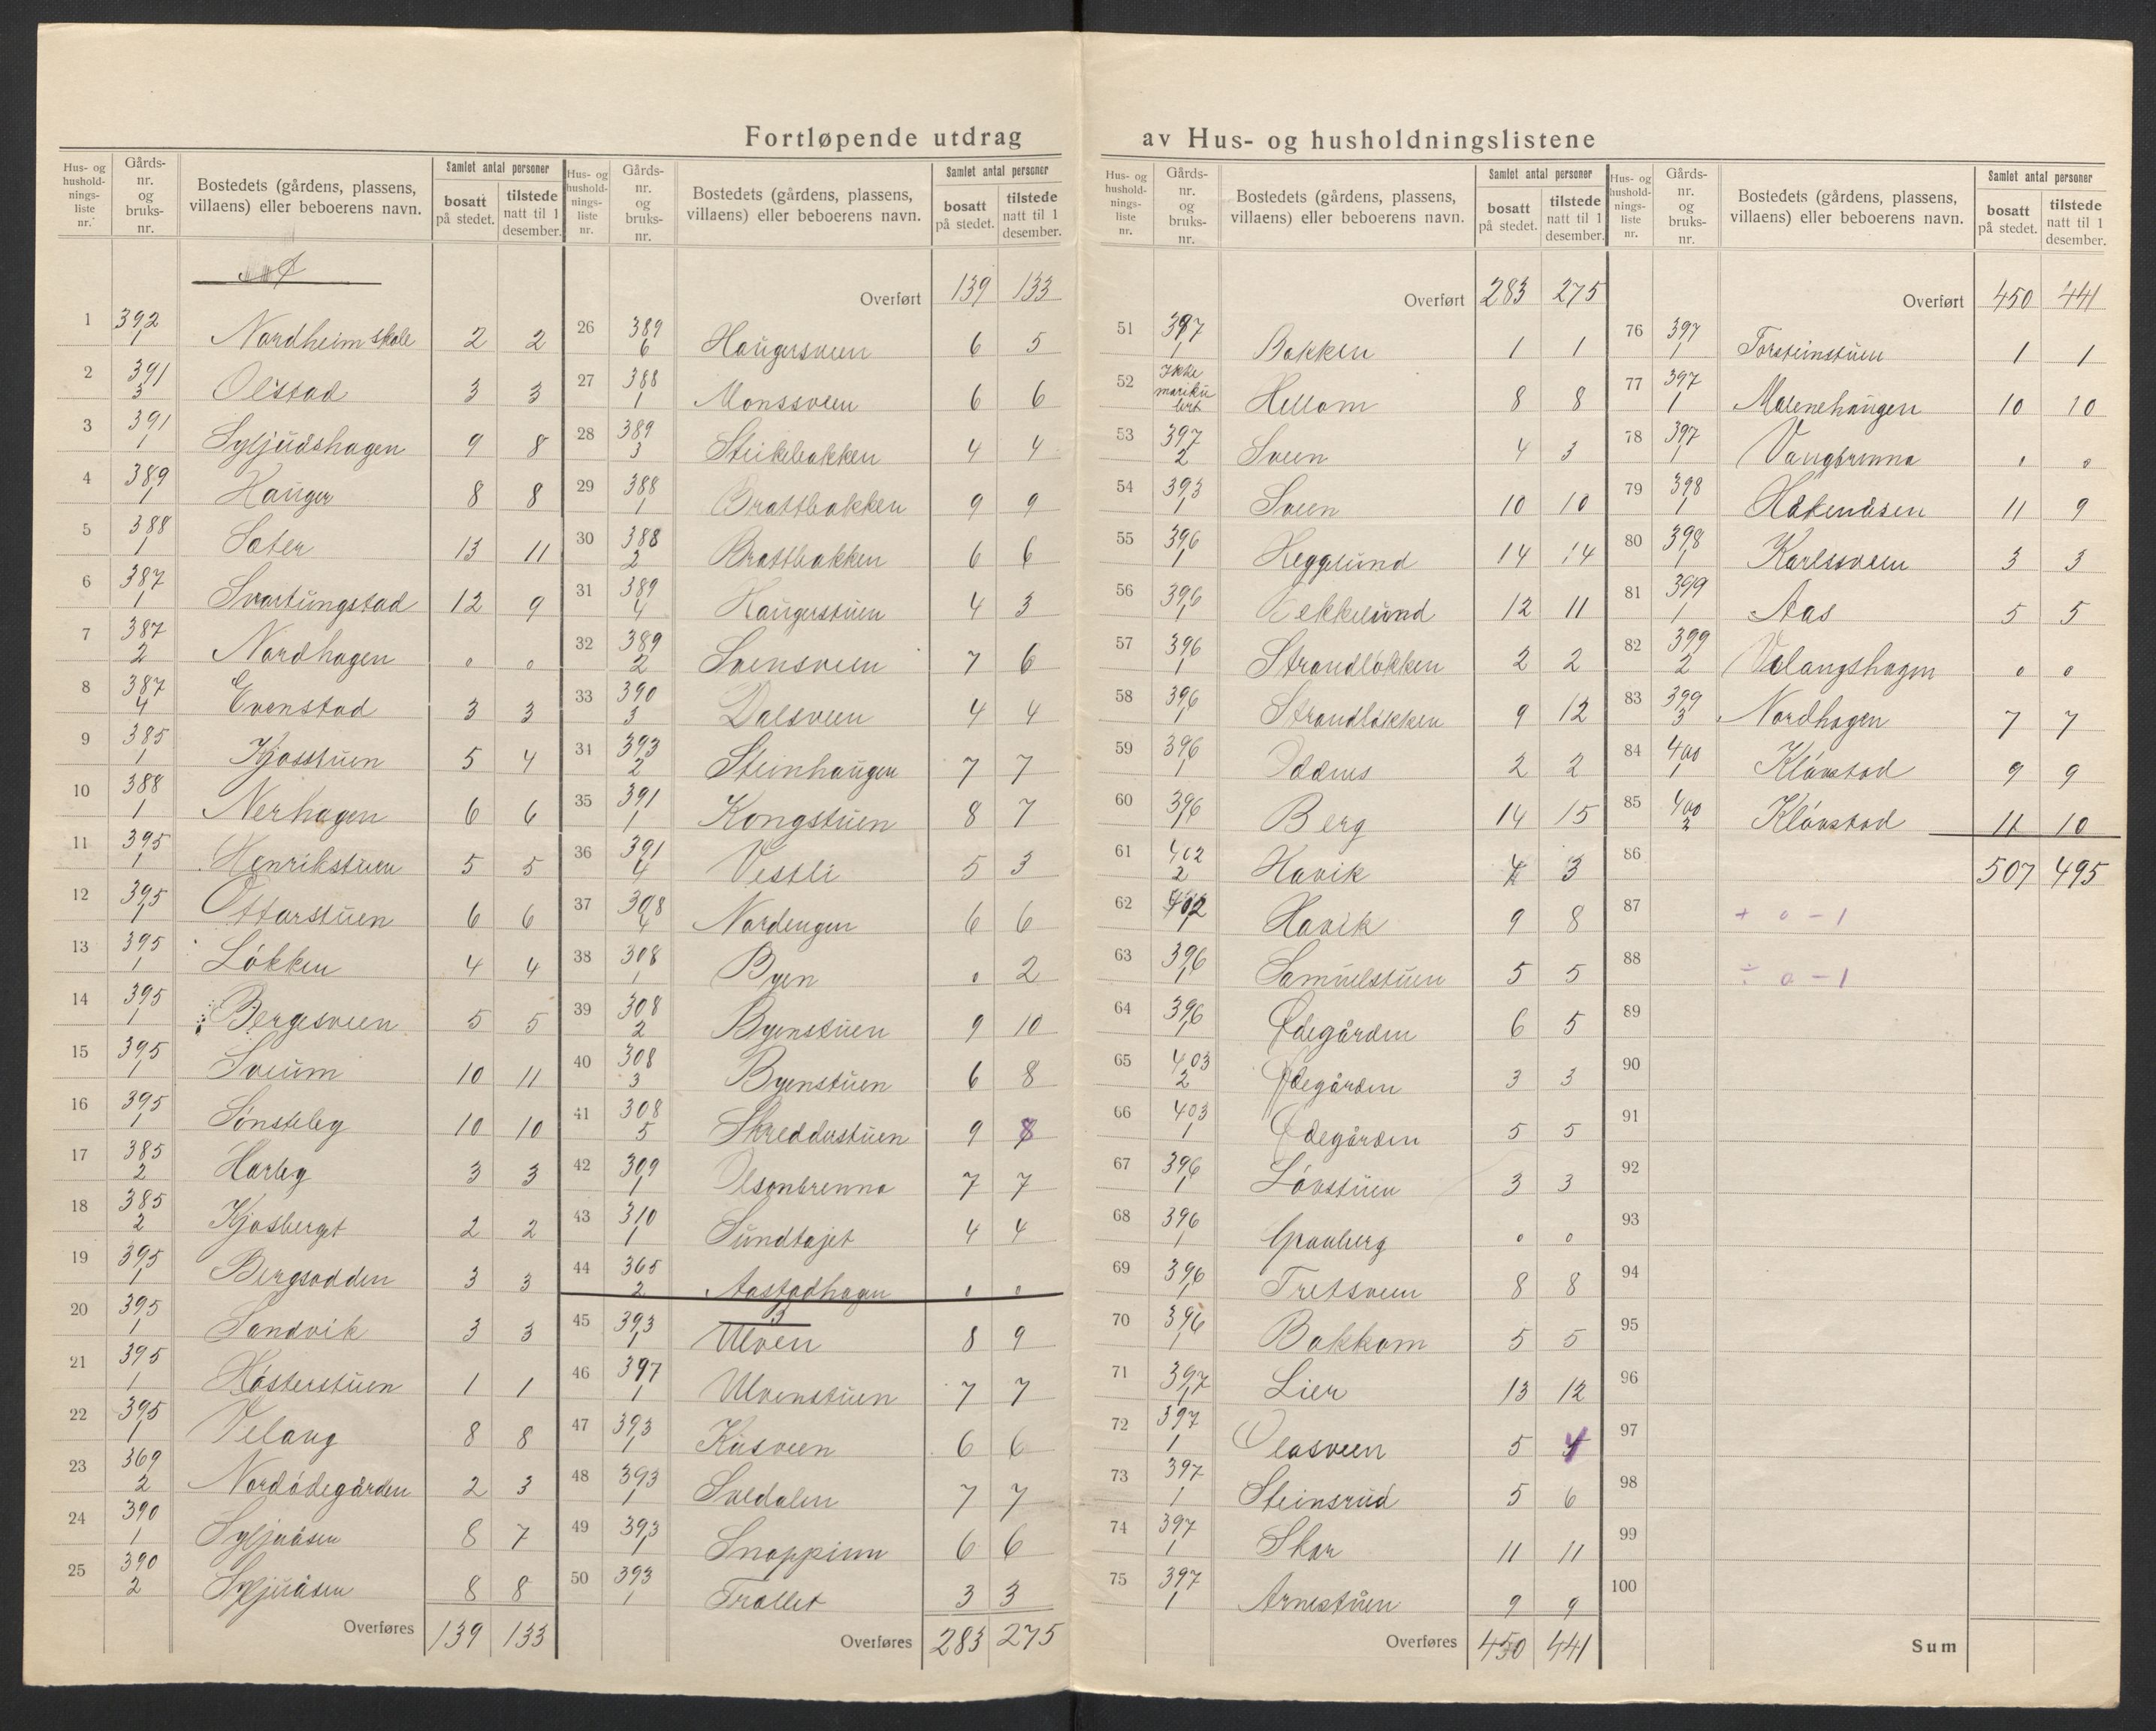 Fortløpende utdrag av Hus- og husholdningslistene
Hus- og hushold-nings-liste nr. | Gårds-nr. og bruks-nr. | Bostedets (gårdens, plassens, villaens) eller beboerens navn. | Samlet antal personer | bosatt på stedet. | tilstede natt til 1 desember.
1 392/1 Nordheim skole 2 2
2 391/3 Olstad 3 3
3 391/1 Syljudshagen 9 8
4 389/1 Hauger 8 8
5 388/1 Sater 13 11
6 387/1 Svartungstad 12 9
7 387/2 Nordhagen 0 0
8 387/4 Evenstad 3 3
9 385/1 Kjosstuen 5 4
10 388/1 Nerhagen 6 6
11 395/1 Henrikstuen 5 5
12 395/1 Ottarstuen 6 6
13 395/1 Løkken 4 4
14 395/1 Bergesveen 5 5
15 395/1 Sveum 10 11
16 395/1 Sønsteby 10 10
17 385/2 Harby 3 3
18 385/2 Kjosberget 2 2
19 395/1 Bergsodden 3 3
20 395/1 Sandvik 3 3
21 395/1 Høsterstuen 1 1
22 395/1 Velang 8 8
23 369/2 Nordødegården 2 3
24 390/1 Syljuåsen 8 7
25 390/2 Syljuåsen 8 8
Overføres 139 133
Hus- og hushold-nings-liste nr. | Gårds-nr. og bruks-nr. | Bostedets (gårdens, plassens, villaens) eller beboerens navn. | Samlet antal personer | bosatt på stedet. | tilstede natt til 1 desember.
Overført 139 133
26 389/6 Haugersveen 6 5
27 388/1 Monssveen 6 6
28 389/3 Steikebakken 4 4
29 388/1 Brattbakken 9 9
30 388/2 Brattbakken 6 6
31 389/4 Haugerstuen 4 3
32 389/2 Svensveen 7 6
33 390/3 Dalsveen 4 4
34 393/2 Steinhaugen 7 7
35 391/1 Kongstuen 8 7
36 391/4 Vestli 5 3
37 308/4 Nordengen 6 6
38 308/1 Byen 0 2
39 308/2 Byenstuen 9 10
40 308/3 Byenstuen 6 8
41 308/5 Skreddustuen 9 8
42 309/1 Olsonbrenna 7 7
43 310/1 Sundtajet 4 4
44 365/2 Aastadhagen 0 0
45 393/1 Ulven 8 9
46 397/1 Ulvenstuen 7 7
47 393/1 Kusveen 6 6
48 393/1 Svedalen 7 7
49 393/1 Snoppinn 6 6
50 393/1 Trollet 3 3
Overføres 283 275
Hus- og hushold-nings-liste nr. | Gårds-nr. og bruks-nr. | Bostedets (gårdens, plassens, villaens) eller beboerens navn. | Samlet antal personer | bosatt på stedet. | tilstede natt til 1 desember.
Overført 283 275
51 397/1 Bakken 1 1
52 Ikke matrikulert Hellom 8 8
53 397/2 Sveen 4 3
54 393/1 Sveen 10 10
55 396/1 Hegglund 14 14
56 396/1 Lekkelund 12 11
57 396/1 Strandløkken 2 2
58 396/1 Strandløkken 9 12
59 396/1 Oddnes 2 2
60 396/1 Berg 14 15
61 402/2 Havik 4 3
62 402 Havik 9 8
63 396/1 Samuelstuen 5 5
64 396/1 Ødegården 6 5
65 403/2 Ødegården 3 3
66 403/1 Ødegården 5 5
67 396/1 Løvstuen 3 3
68 396/1 Granberg 0 0
69 396/1 Tretsveen 8 8
70 396/1 Bakkom 5 5
71 397/1 Lier 13 12
72 397/1 Olasveen 5 4
73 397/1 Steinsrud 5 6
74 397/1 Skar 11 11
75 397/1 Arnestuen 9 9
Overføres 450 441
Hus- og hushold-nings-liste nr. | Gårds-nr. og bruks-nr. | Bostedets (gårdens, plassens, villaens) eller beboerens navn. | Samlet antal personer | bosatt på stedet. | tilstede natt til 1 desember.
Overført 450 441
76 397/1 Torsteinstuen 1 1
77 397/1 Malenehaugen 10 10
78 397/1 Vangbrenna 0 0
79 398/1 Håkenåsen 11 9
80 398/1 Karlssveen 3 3
81 399/1 Aas 5 5
82 399/2 Velangshagen 0 0
83 399/3 Nordhagen 7 7
84 400/1 Kløvstad 9 9
85 400/2 Kløvstad 11 10
86 507 495
87 + 0 – 1
88 ÷ 0 – 1
89
90
91
92
93
94
95
96
97
98
99
100
Sum